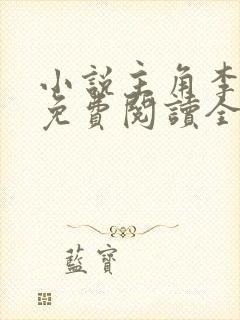 小說主角李
免費閱讀全
藍寶